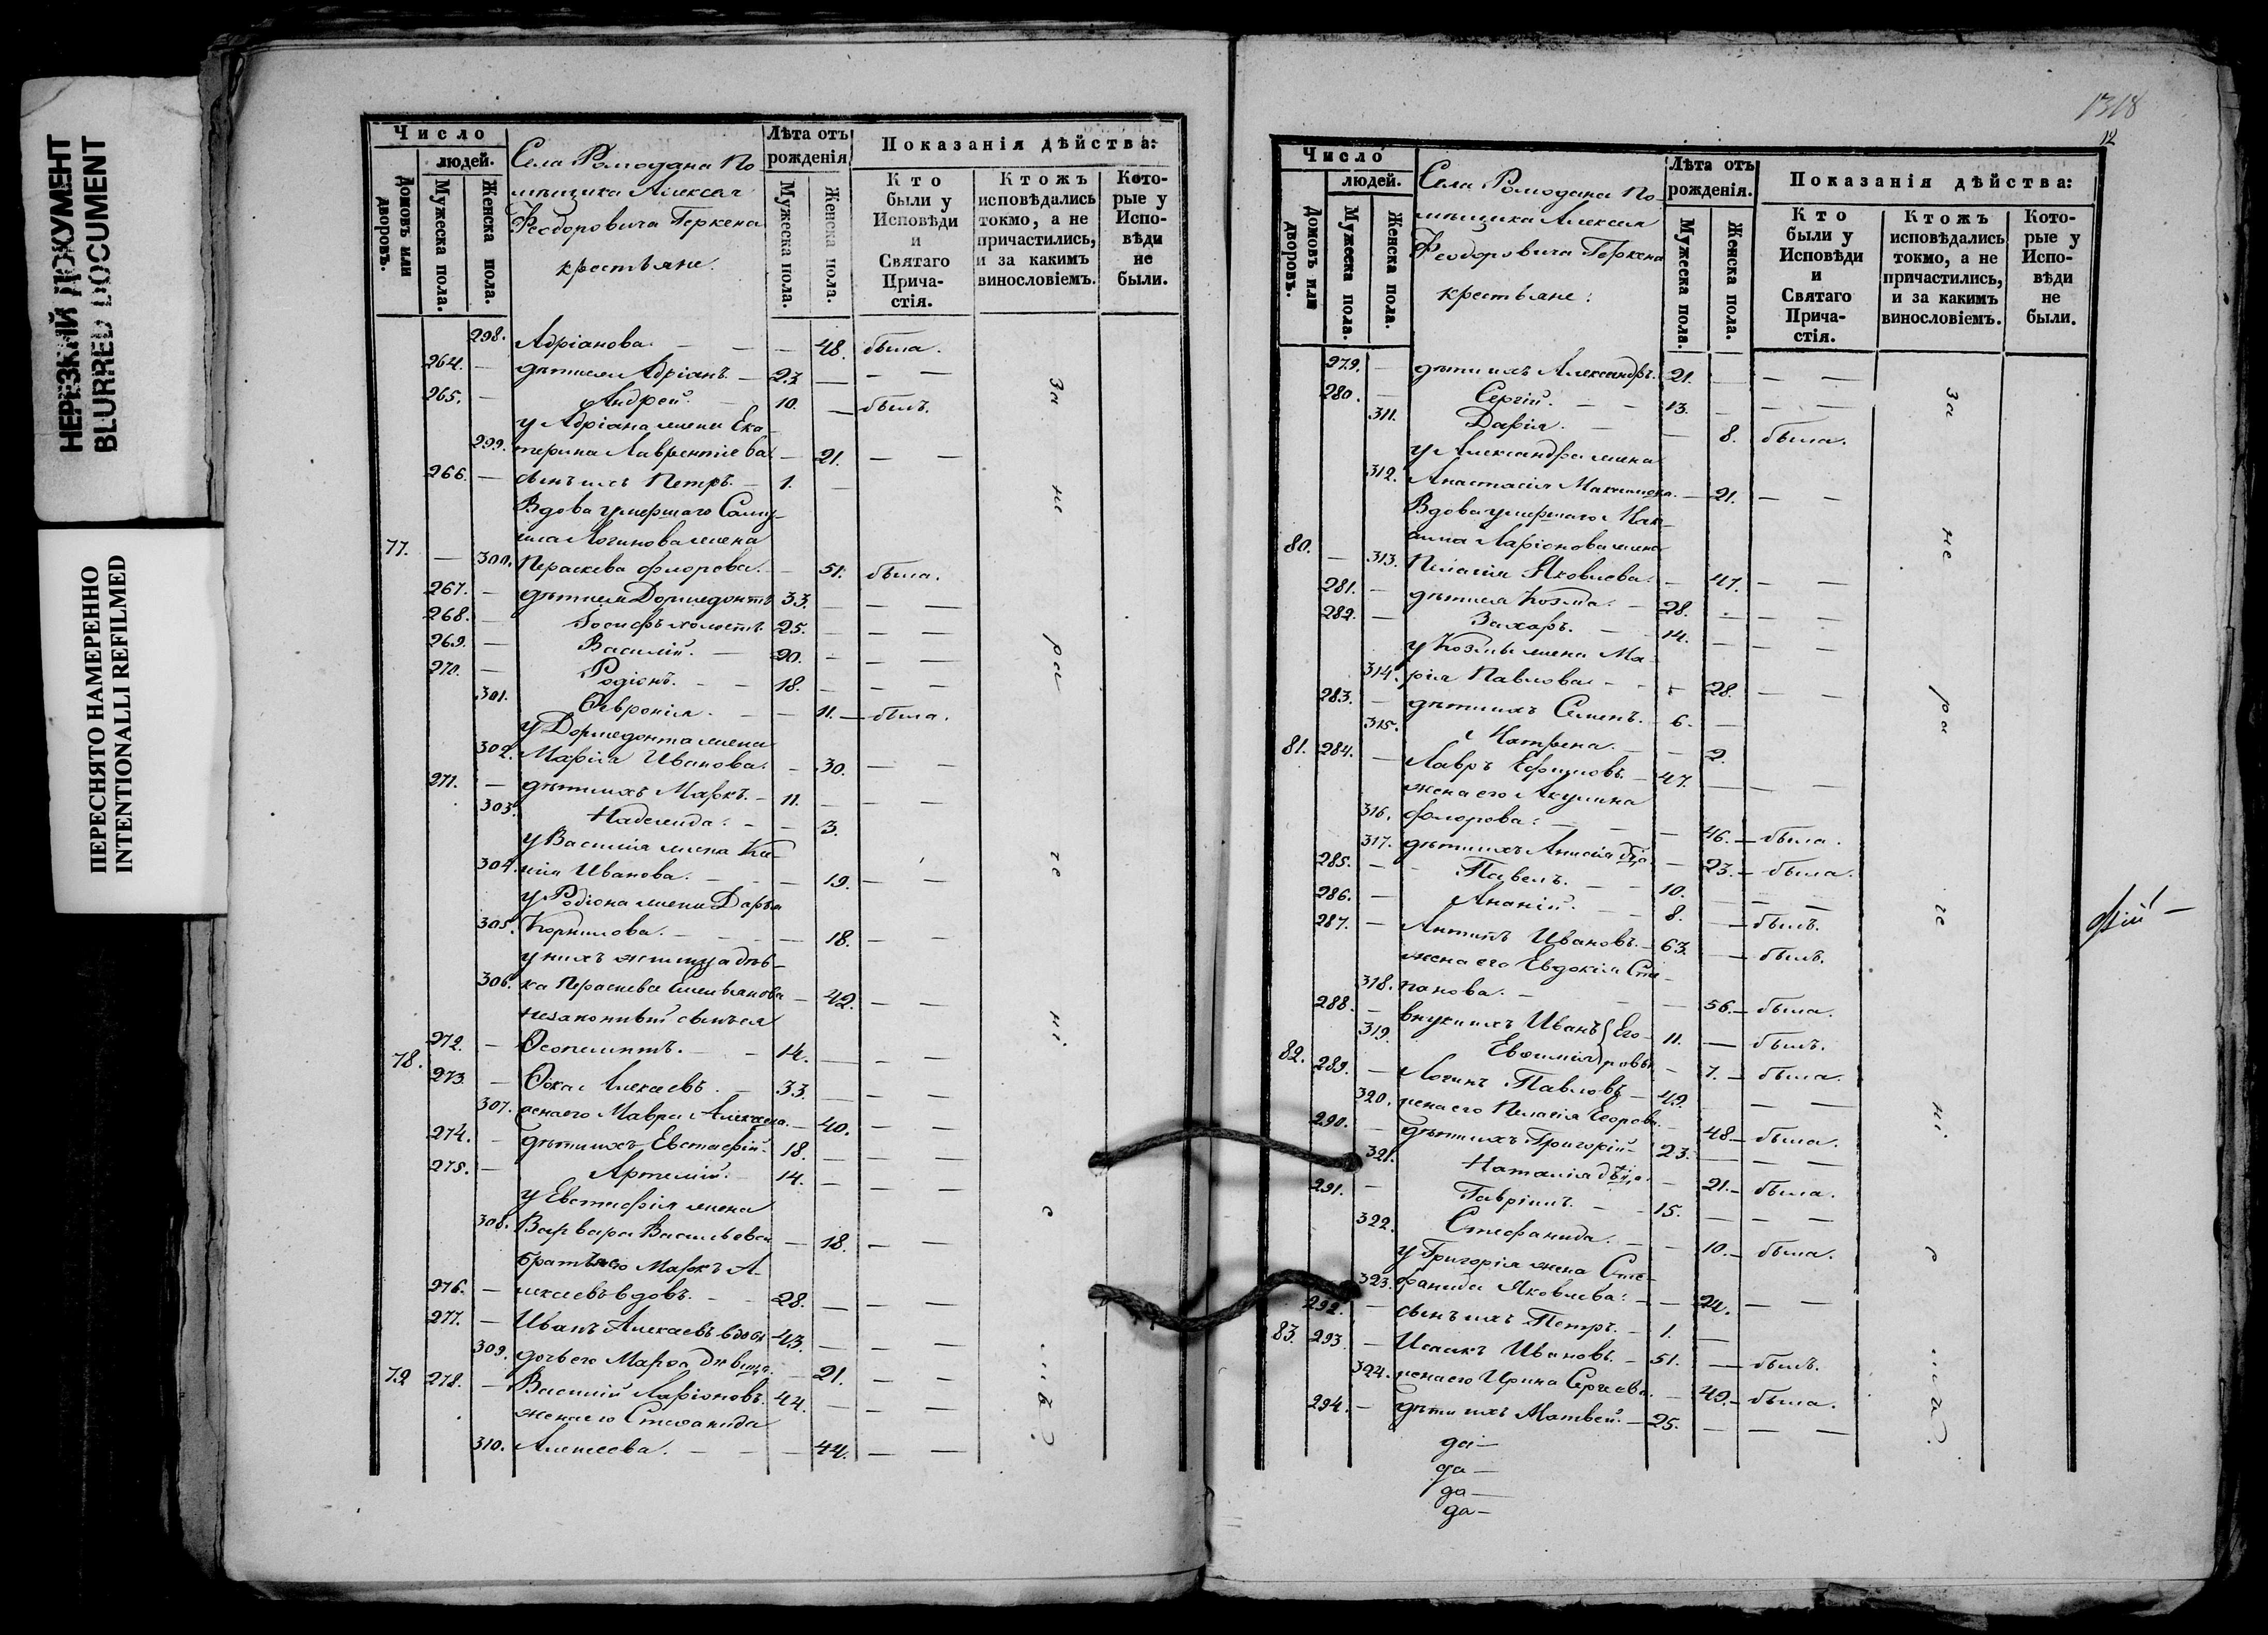 НЕРЕЗКИЙ ДОКУМЕНТ
BLURRED DOCUMENT
ПЕРЕСНЯТО НАМЕРЕННО
INTENTIONALLI REFILMED
Число
людей.
Домовъ или дворовъ.
Мужеска пола.
Женска пола.
Села Ромодана По-
мѣщика Алексея
Феодоровича Геркена
крестьяне.
Лѣта отъ рожденія
Мужеска пола.
Женска пола.
Показанія дѣйства:
Кто были у Исповѣди и Святаго Прича-стія.
Ктожъ исповѣдались токмо, а не причастились, и за какимъ винословіемъ.
Кото-рые у Испо-вѣди не были.
298. Адріанова. — — — 48. была.
264. — дѣти ея Адріанъ. — 23. — — —
265. — Андрей. 10. — былъ.
у Адріана жена Ека-
299. терина Лаврентіева — 21. — —
266. — сынъ ихъ Петръ. — 1. —
Вдова умершаго Саму-
ила Логинова жена
77. — 300. Параскева Флорова. — 51. была.
267. — дѣти ея Дормедонтъ 33. — — —
268. — Іосифъ холостъ 25. — — —
269. — Василій. — 20. — — —
270. — Родіонъ. — — 18. — — —
301. Февронія. — — 11. — была.
у Дормедонта жена
302. Марія Иванова. — 30. — —
271. — дѣти ихъ Маркъ. — 11. — — —
303. Надежда. — — 3.
у Василія жена Ксе-
304. нія Иванова. — — — 19. — —
у Родіона жена Дарья
305. Корнилова. — — — — 18. — —
у нихъ жилица дѣв-
306. ка Параскева Емельянова — 42. — —
незаконный сынъ ея
272. — Феопемптъ. — — 14. — — —
78. 273. — Фока Алексѣевъ. — 33. — — —
307. жена его Мавра Алексѣева. — 40. — —
274. — дѣти ихъ Евстафій. 18. — — —
275. — Артемій. — 14. — — —
у Евстафія жена
308. Варвара Васильева — 18. — —
братъ его Маркъ А-
276. — лексѣевъ вдовъ. — 28. — — —
277. — Иванъ Алексѣевъ вдовъ 43. — — —
309. дочь его Марѳа дѣвица. 21. — —
79. 278. — Василій Ларіоновъ. 44. — — —
жена его Стефанида
310. Алексеева. — — — 44. — —
за
не
ра
че
ні
е
1318
12
Число
людей.
Домовъ или дворовъ.
Мужеска пола.
Женска пола.
Села Ромодана По-
мѣщика Алексея
Феодоровича Геркена
крестьяне:
Лѣта отъ рожденія.
Мужеска пола.
Женска пола.
Показанія дѣйства:
Кто были у Исповѣди и Святаго Прича-стія.
Ктожъ исповѣдались токмо, а не причастились, и за какимъ винословіемъ.
Кото-рые у Испо-вѣди не были.
279. — дѣти ихъ Александръ. 21. — — —
280. — Сергій. — — 13. — — —
311. Дарія. — — 8. была.
у Александра жена
312. Анастасія Максимова. — 21. — —
Вдова умершаго Мак-
сима Ларіонова жена
80. — 313. Пелагія Яковлева. — 47. — —
281. — дѣти ея Козма. — 28. — — —
282. — Захаръ. — — 14. — — —
у Козмы жена Ма-
314. рія Павлова — — — 28. — —
283. — дѣти ихъ Семенъ. — 6. —
315. Матрена. — — 2.
81. 284. — Лавръ Ефимовъ. — 47. — — —
жена его Акулина
316. Флорова. — — — 46. — была.
317. дѣти ихъ Анисія дѣв. — 23. — была.
285. — — Павелъ. — — 10. — — —
286. — Ананій. — — 8. — былъ.
287. — Антипъ Ивановъ. — 63. — былъ.
жена его Евдокія Сте-
318. панова. — — — 56. — была.
288. — внуки ихъ Иванъ } Его- 11. — былъ.
319. Евфимія } ровы — 7. — была.
82. 289. — Логинъ Павловъ — 49. — — —
320. жена его Пелагія Егорова. — 48 — была.
290. — дѣти ихъ Григорій — 23. — — —
321. Наталія дѣвица — 21. — была.
291. — Гавріилъ. — — 15. — — —
322. Стефанида. — — 10. — была.
у Григорія жена Сте-
323. фанида Яковлева. — — 24. — —
292. — сынъ ихъ Петръ. — 1. —
83. 293. — Исаакъ Ивановъ. — 51. — былъ.
324. жена его Ирина Сергѣева. — 49. — была.
294. — дѣти ихъ Матвей. — 25. — — —
за
не
ра
че
ні
е
да —
да —
да —
да —